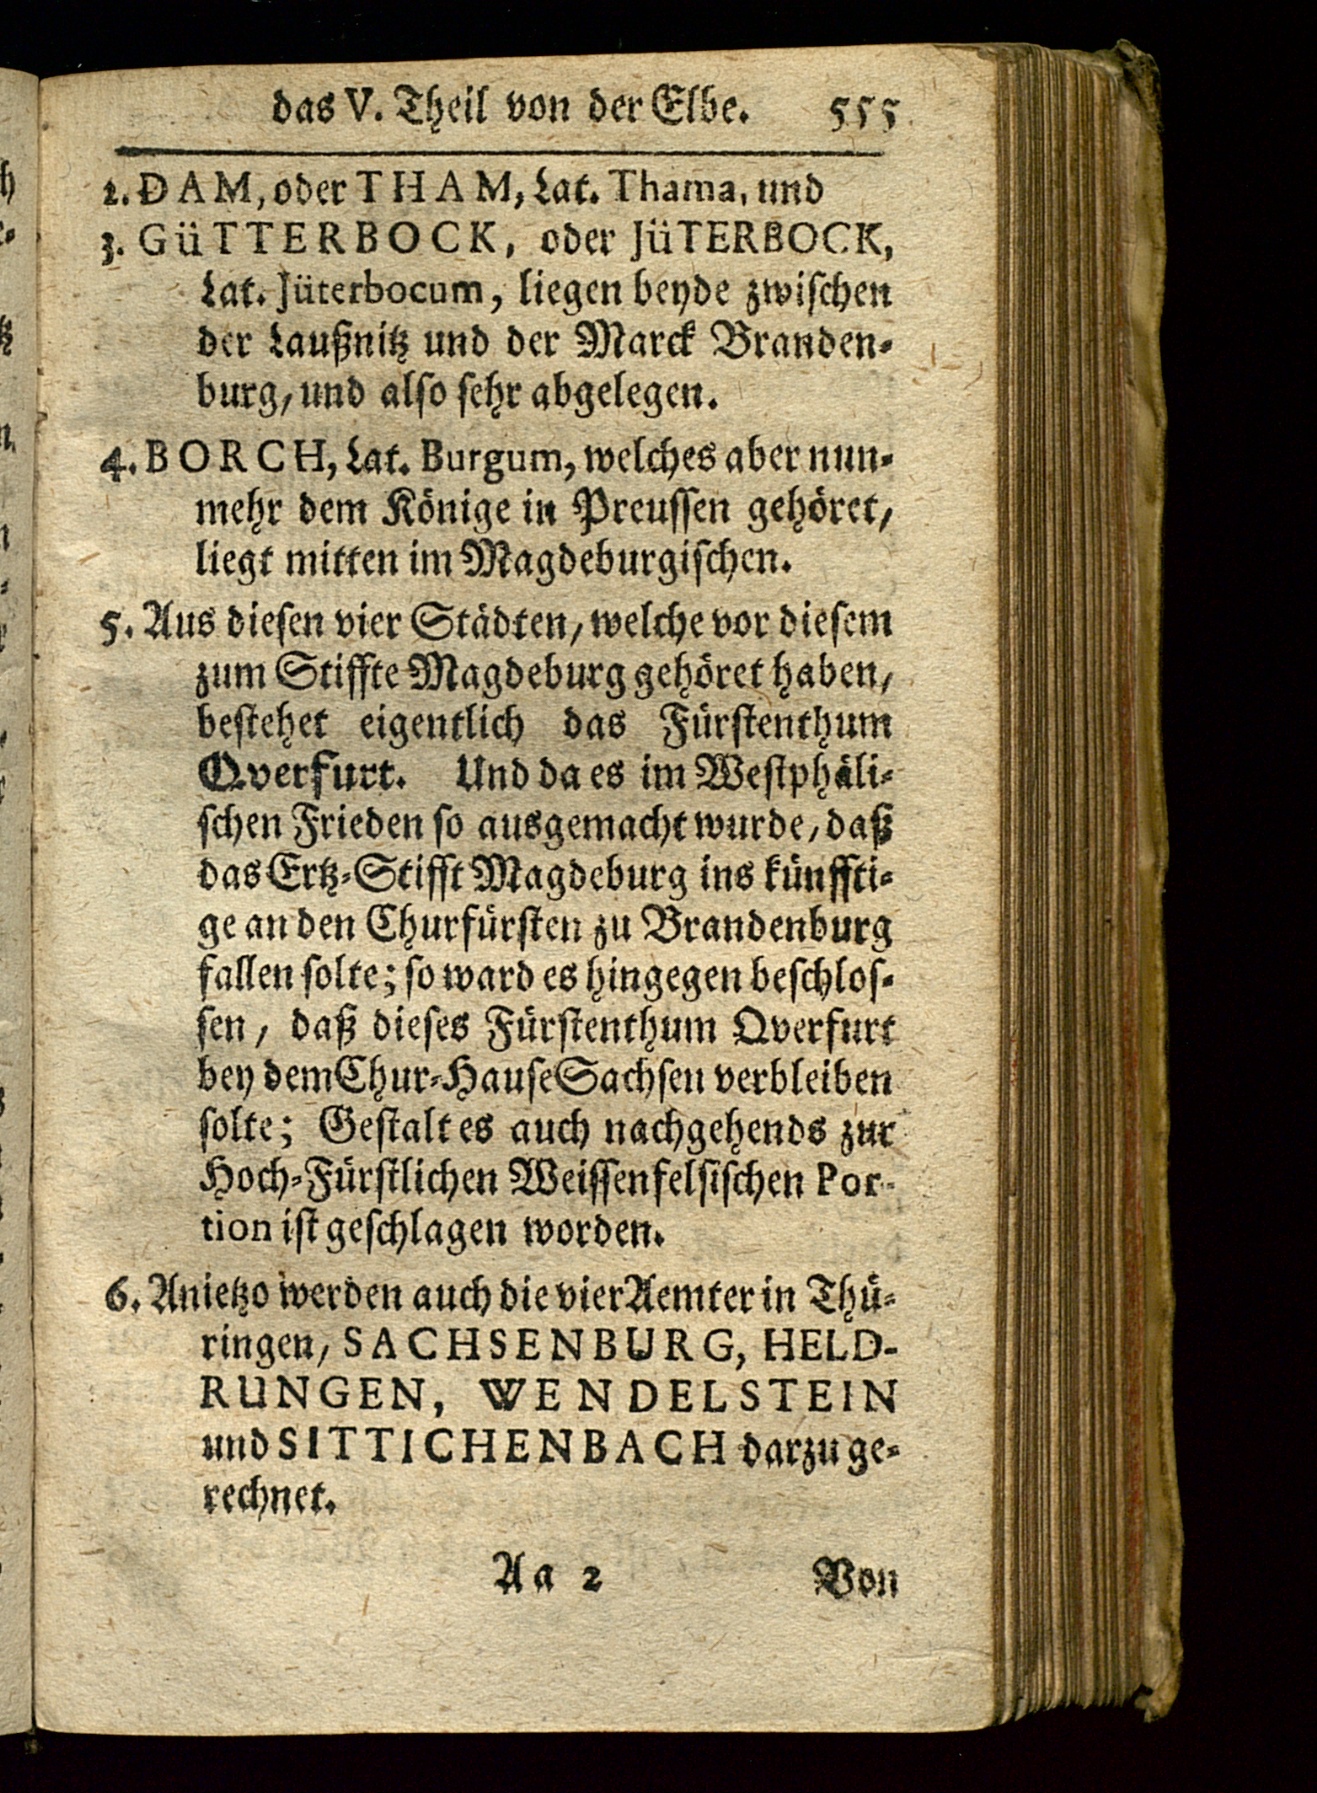 das V. Theil von der Elbe. 555
2. DAM, oder THAM, Lat. Thama, und
3. GüTTERBOCK, oder JüTERBOCK,
Lat. Jüterbocum, liegen beyde zwischen
der Laußnitz und der Marck Branden-
burg, und also sehr abgelegen.
4. BORCH, Lat. Burgum, welches aber nun-
mehr dem Könige in Preussen gehöret,
liegt mitten im Magdeburgischen.
5. Aus diesen vier Städten, welche vor diesem
zum Stiffte Magdeburg gehöret haben,
bestehet eigentlich das Fürstenthum
Qverfurt. Und da es im Westphäli-
schen Frieden so ausgemacht wurde, daß
das Ertz-Stifft Magdeburg ins künffti-
ge an den Churfürsten zu Brandenburg
fallen solte; so ward es hingegen beschlos-
sen, daß dieses Fürstenthum Qverfurt
bey dem Chur-Hause Sachsen verbleiben
solte; Gestalt es auch nachgehends zur
Hoch-Fürstlichen Weissenfelsischen Por-
tion ist geschlagen worden.
6. Anietzo werden auch die vier Aemter in Thü-
ringen, SACHSENBURG, HELD-
RUNGEN, WENDELSTEIN
und SITTICHENBACH darzu ge-
rechnet.
Aa 2 Von